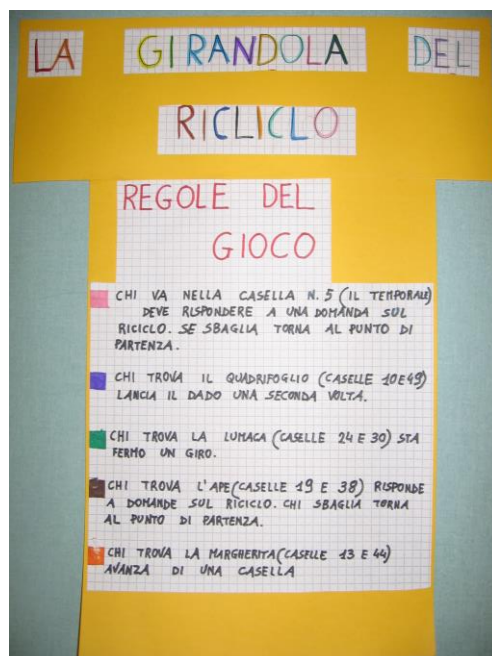 LA GIRANDOLA DEL
RICLICLO
REGOLE DEL
GIOCO
CHI VA NELLA CASELLA N. 5 (IL TEMPORALE)
DEVE RISPONDERE A UNA DOMANDA SUL
RICICLO. SE SBAGLIA TORNA AL PUNTO DI
PARTENZA.
CHI TROVA IL QUADRIFOGLIO (CASELLE 10 E 49)
LANCIA IL DADO UNA SECONDA VOLTA.
CHI TROVA LA LUMACA (CASELLE 24 E 30) STA
FERMO UN GIRO.
CHI TROVA L'APE (CASELLE 19 E 38) RISPONDE
A DOMANDE SUL RICICLO. CHI SBAGLIA TORNA
AL PUNTO DI PARTENZA.
CHI TROVA LA MARGHERITA (CASELLE 13 E 44)
AVANZA DI UNA CASELLA